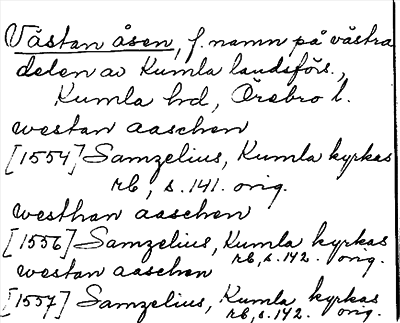 Västan åsen, f. namn på västra
delen av Kumla landsförs.,
Kumla hd, Örebro l.
westan aaschen
[1554] Samzelius, Kumla kyrkas
rb, s. 141. orig.
westhan aaschen
[1556] Samzelius, Kumla kyrkas
rb, s. 142. orig.
westan aaschen
[1557] Samzelius, Kumla kyrkas
rb, s. 142. orig.